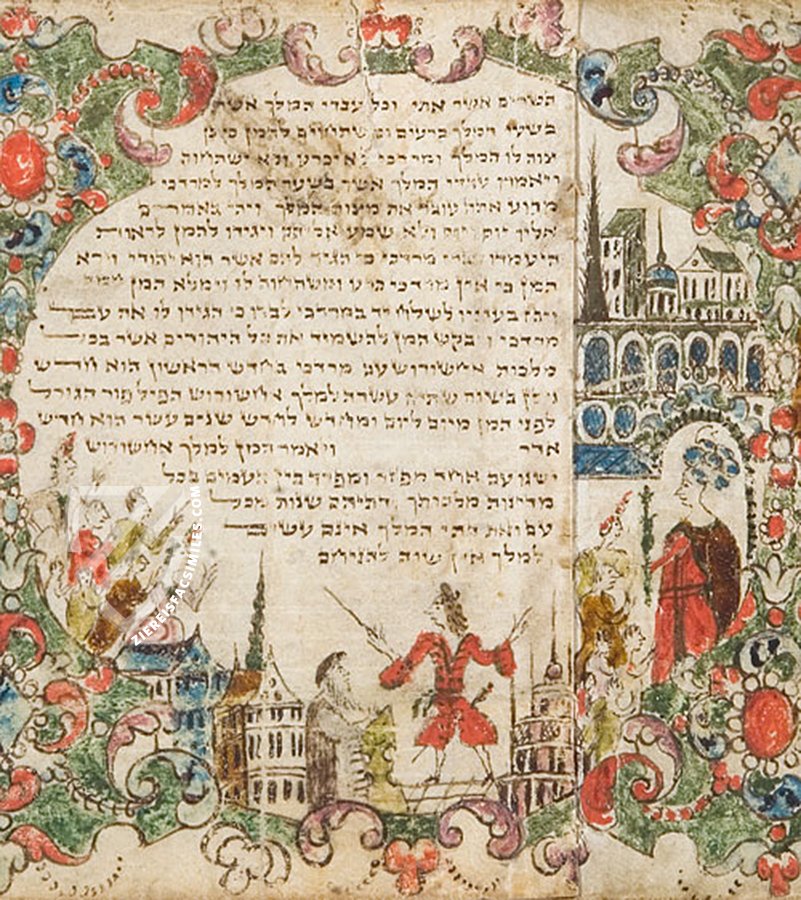 השרים אשר אתו וכל עבדי המלך אשר
בשער המלך כרעים ומשתחוים להמן כי כן
צוה לו המלך ומרדכי לא יכרע ולא ישתחוה
ויאמרו עבדי המלך אשר בשער המלך למרדכי
מדוע אתה עובר את מצות המלך ויהי באמרם
אליו יום ויום ולא שמע אליהם ויגידו להמן לראות
היעמדו דברי מרדכי כי הגיד להם אשר הוא יהודי וירא
המן כי אין מרדכי כרע ומשתחוה לו וימלא המן חמה
ויבז בעיניו לשלח יד במרדכי לבדו כי הגידו לו את עם
מרדכי ויבקש המן להשמיד את כל היהודים אשר בכל
מלכות אחשורוש עם מרדכי בחדש הראשון הוא חדש
ניסן בשנת שתים עשרה למלך אחשורוש הפיל פור הגורל
לפני המן מיום ליום ומחדש לחדש שנים עשר הוא חדש
אדר ויאמר המן למלך אחשורוש
ישנו עם אחד מפזר ומפרד בין העמים בכל
מדינות מלכותך ודתיהם שנות מכל
עם ואת דתי המלך אינם עשים
ולמלך אין שוה להניחם
ZIEREISFACSIMILES.COM